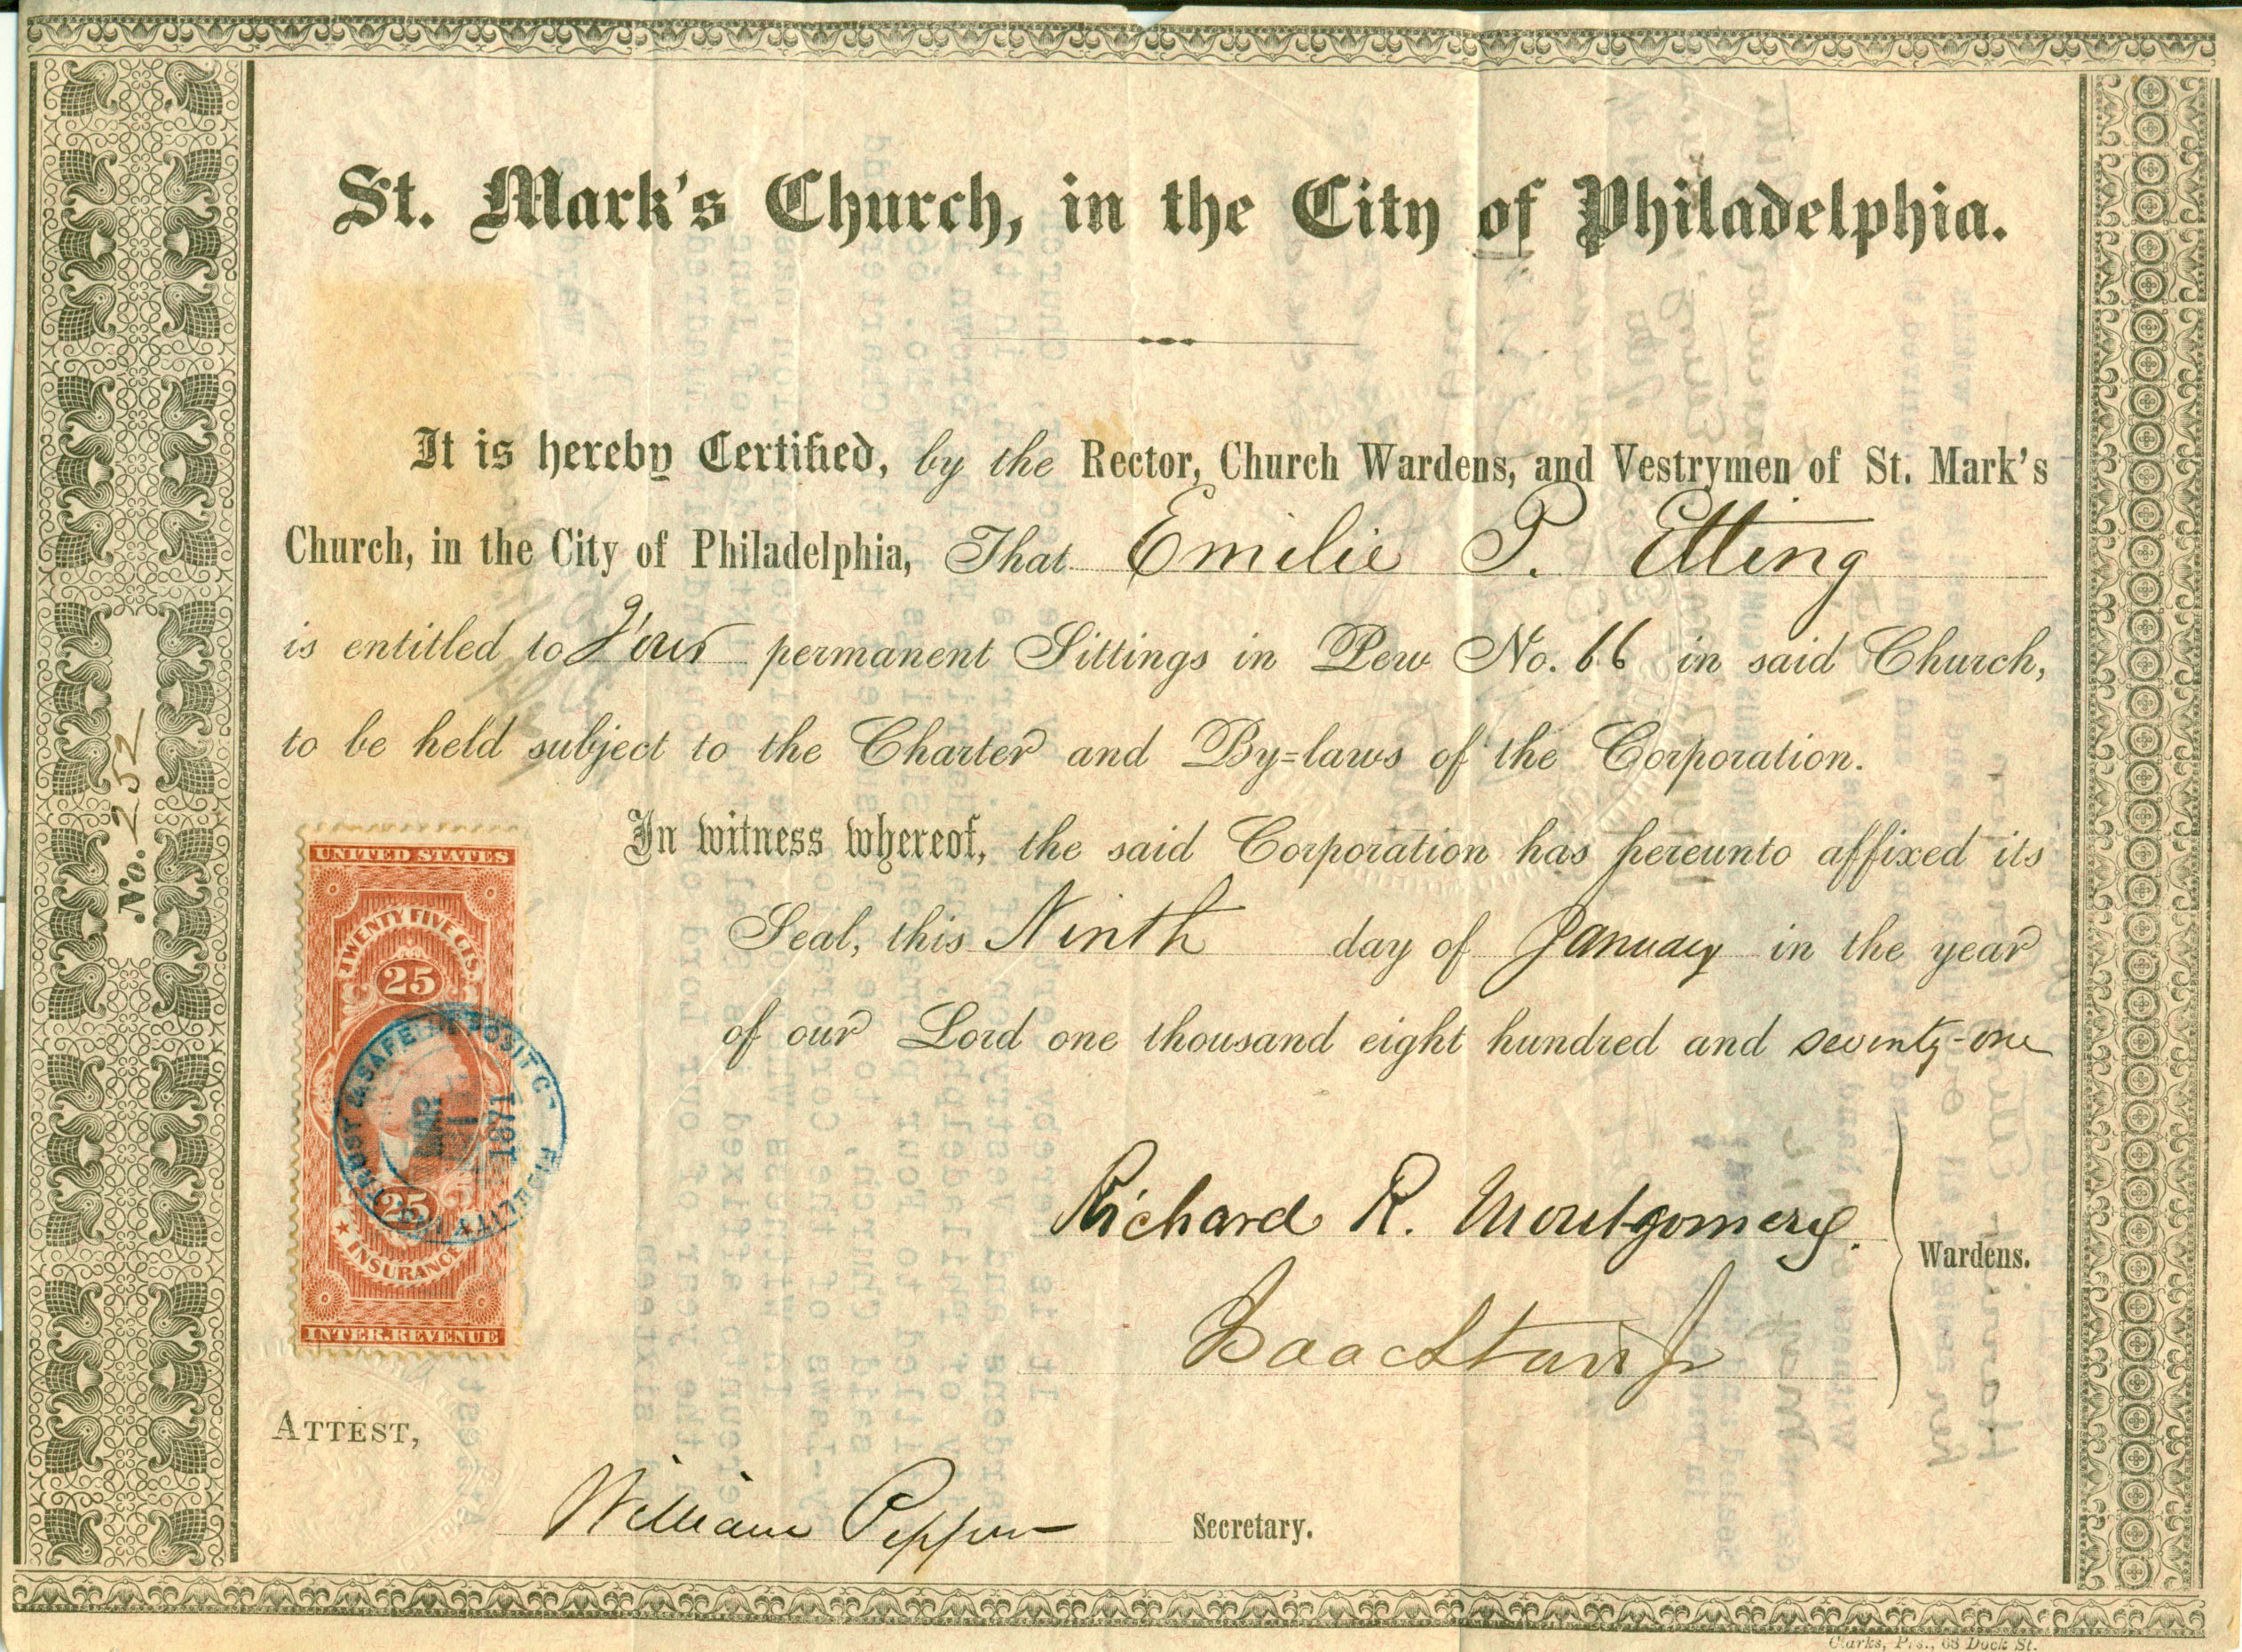 St. Mark's Church, in the City of Philadelphia.
It is hereby Certified, by the Rector, Church Wardens, and Vestrymen of St. Mark's
Church, in the City of Philadelphia, That Emilie P. Etting
is entitled to Four permanent Sittings in Pew No. 66 in said Church,
to be held subject to the Charter and By-laws of the Corporation.
In witness whereof, the said Corporation has hereunto affixed its
Seal, this Ninth day of January in the year
of our Lord one thousand eight hundred and seventy-one
No. 252
UNITED STATES
TWENTY FIVE CTS.
25
TRUST & SAFE DEPOSIT CO FIDELITY INS
MAR
1871
25
INSURANCE
INTER. REVENUE
Richard R. Montgomery.
Isaac Starr Jr
Wardens.
ATTEST,
William Pepper Secretary.
Clarks, Prs., 68 Dock St.